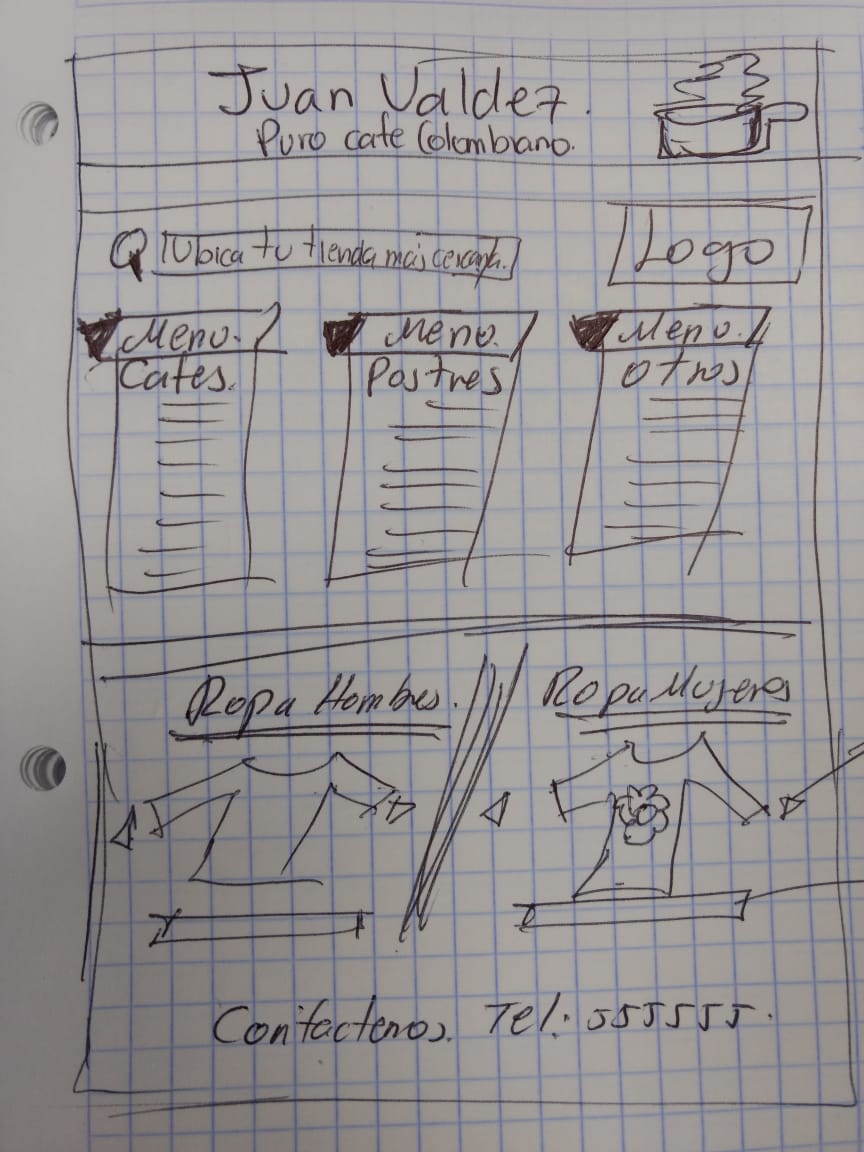 Juan Valdez.
Puro cafe Colombiano.
Ubica tu tienda más cercana.
Logo
Menu.
Cafes.
Menu.
Postres
Menu.
otros
Ropa Hombres.
Ropa Mujeres
Contactenos. Tel: 555555.